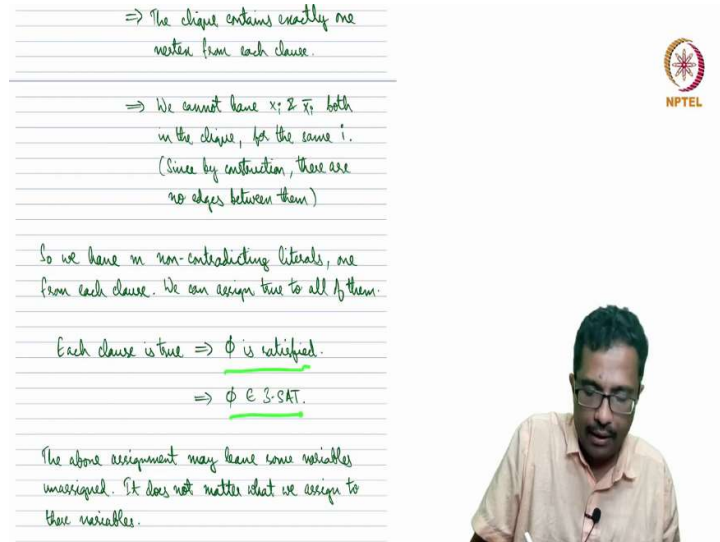 ⇒ The clique contains exactly one
vertex from each clause.
⇒ We cannot have xᵢ & x̄ᵢ both
in the clique, for the same i.
(Since by construction, there are
no edges between them)
So we have m non-contradicting literals, one
from each clause. We can assign true to all of them.
Each clause is true ⇒ ϕ is satisfied.
⇒ ϕ ∈ 3-SAT.
The above assignment may leave some variables
unassigned. It does not matter what we assign to
these variables.
NPTEL